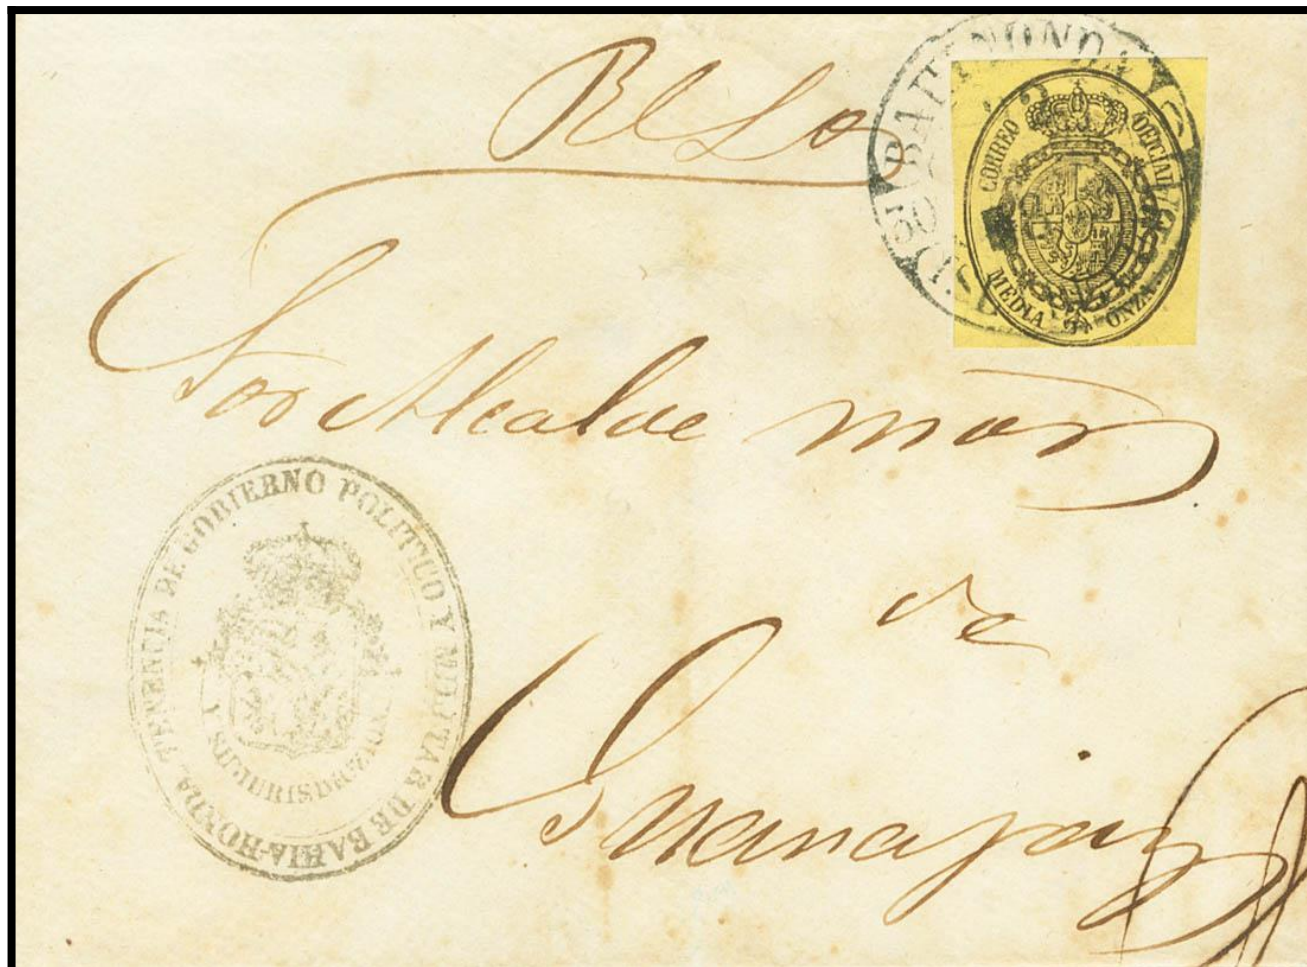 Rl So
BAHIA HONDA
CORREO OFICIAL
MEDIA ONZA
Sor Alcalde mor
de
Guanajay
TENENCIA DE GOBIERNO POLITICO Y MILITAR DE BAHIA-HONDA
Y SU JURISDICCION